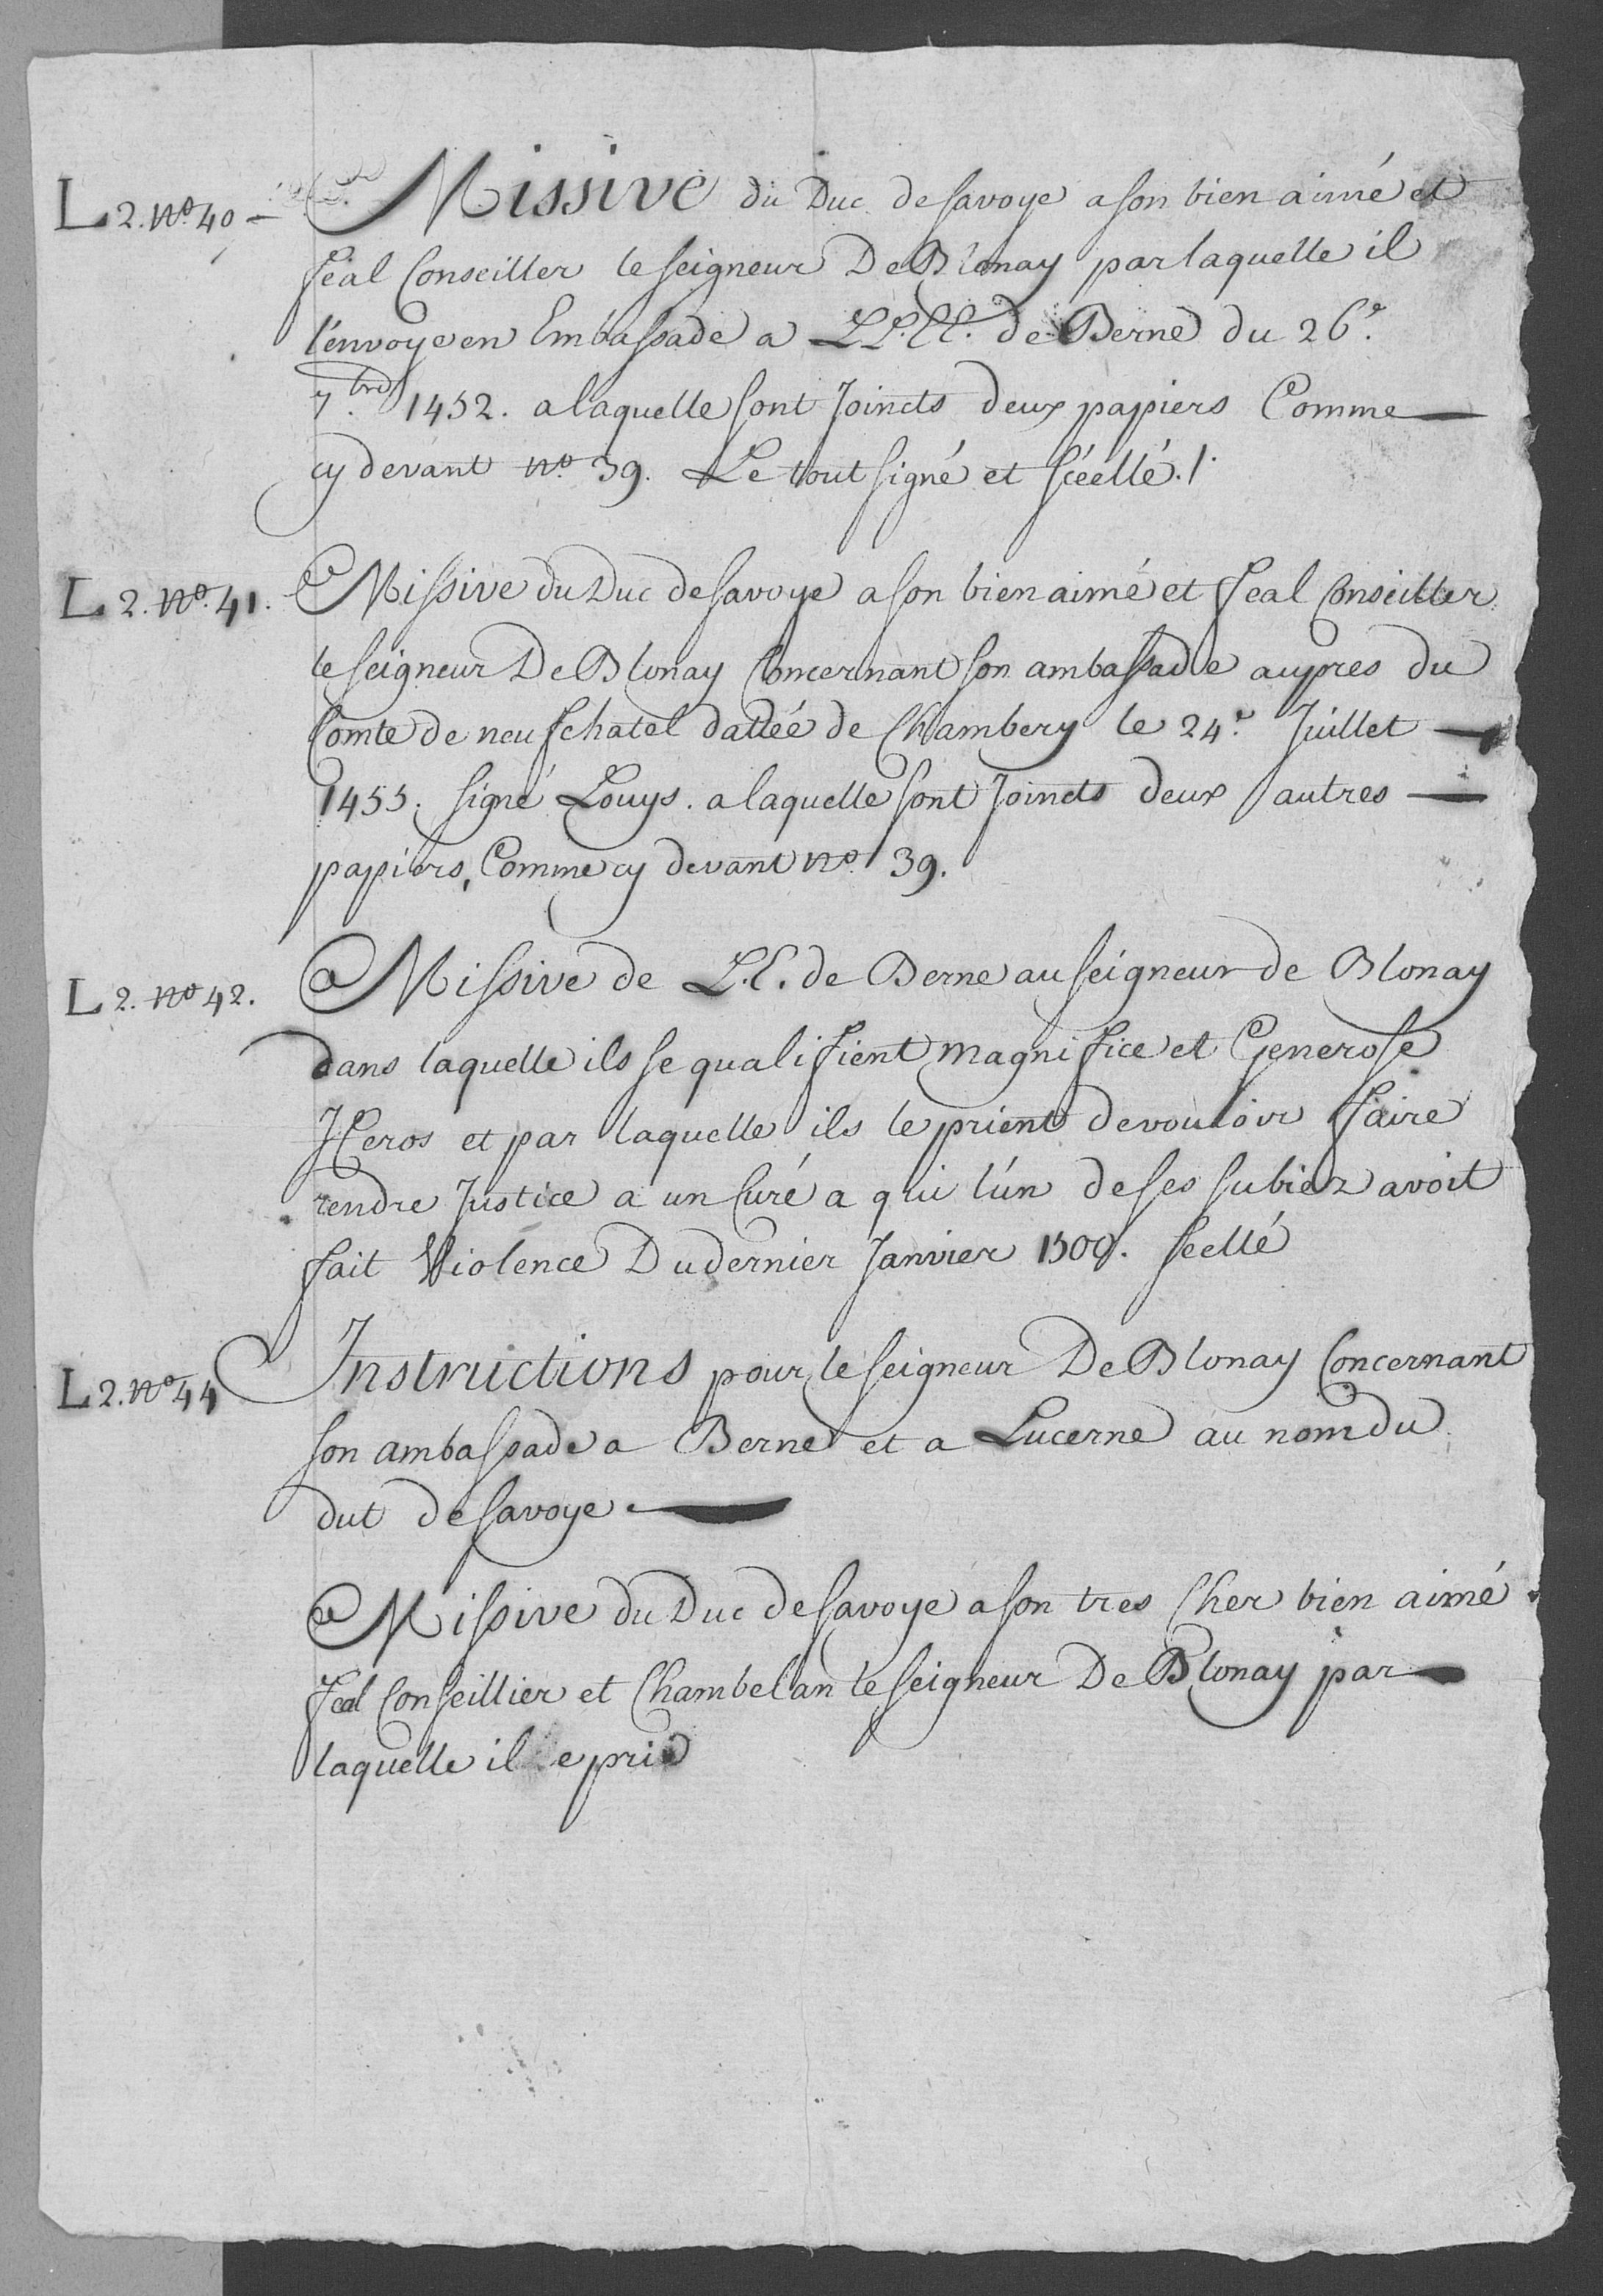 L 2. N.o 40 — Missive du Duc de Savoye a son bien aimé et
feal Conseiller le seigneur De Blonay par laquelle il
l'envoye en Embassade a LL.EE. de Berne du 26.e
7.bre 1452. a laquelle sont Joincts deux papiers Comme —
cy devant N.o 39. Le tout signé et scéellé. /.
L 2. N.o 41. Missive du Duc de Savoye a son bien aimé et feal Conseiller
le seigneur De Blonay Concernant son ambassade aupres du
Comte de neufchatel dattée de Chambery le 24.e Juillet —
1455. signé Louys. a laquelle sont Joincts deux autres —
papiers, Comme cy devant N.o 39.
L 2. N.o 42. Missive de L.E. de Berne au seigneur de Blonay
dans laquelle ils se qualifient magnifice et Generose
Heros et par laquelle ils le prient de vouloir faire
rendre Justice a un Curé a qui l'un de ses subiez avoit
fait Violence Du dernier Janvier scellé
L 2. N.o 44 Instructions pour le seigneur De Blonay Concernant
son ambassade a Berne et a Lucerne au nom du
dut de Savoye. —
Missive du Duc de Savoye a son tres Cher bien aimé
feal Conseillier et Chambelan le seigneur De Blonay par —
laquelle il le prie